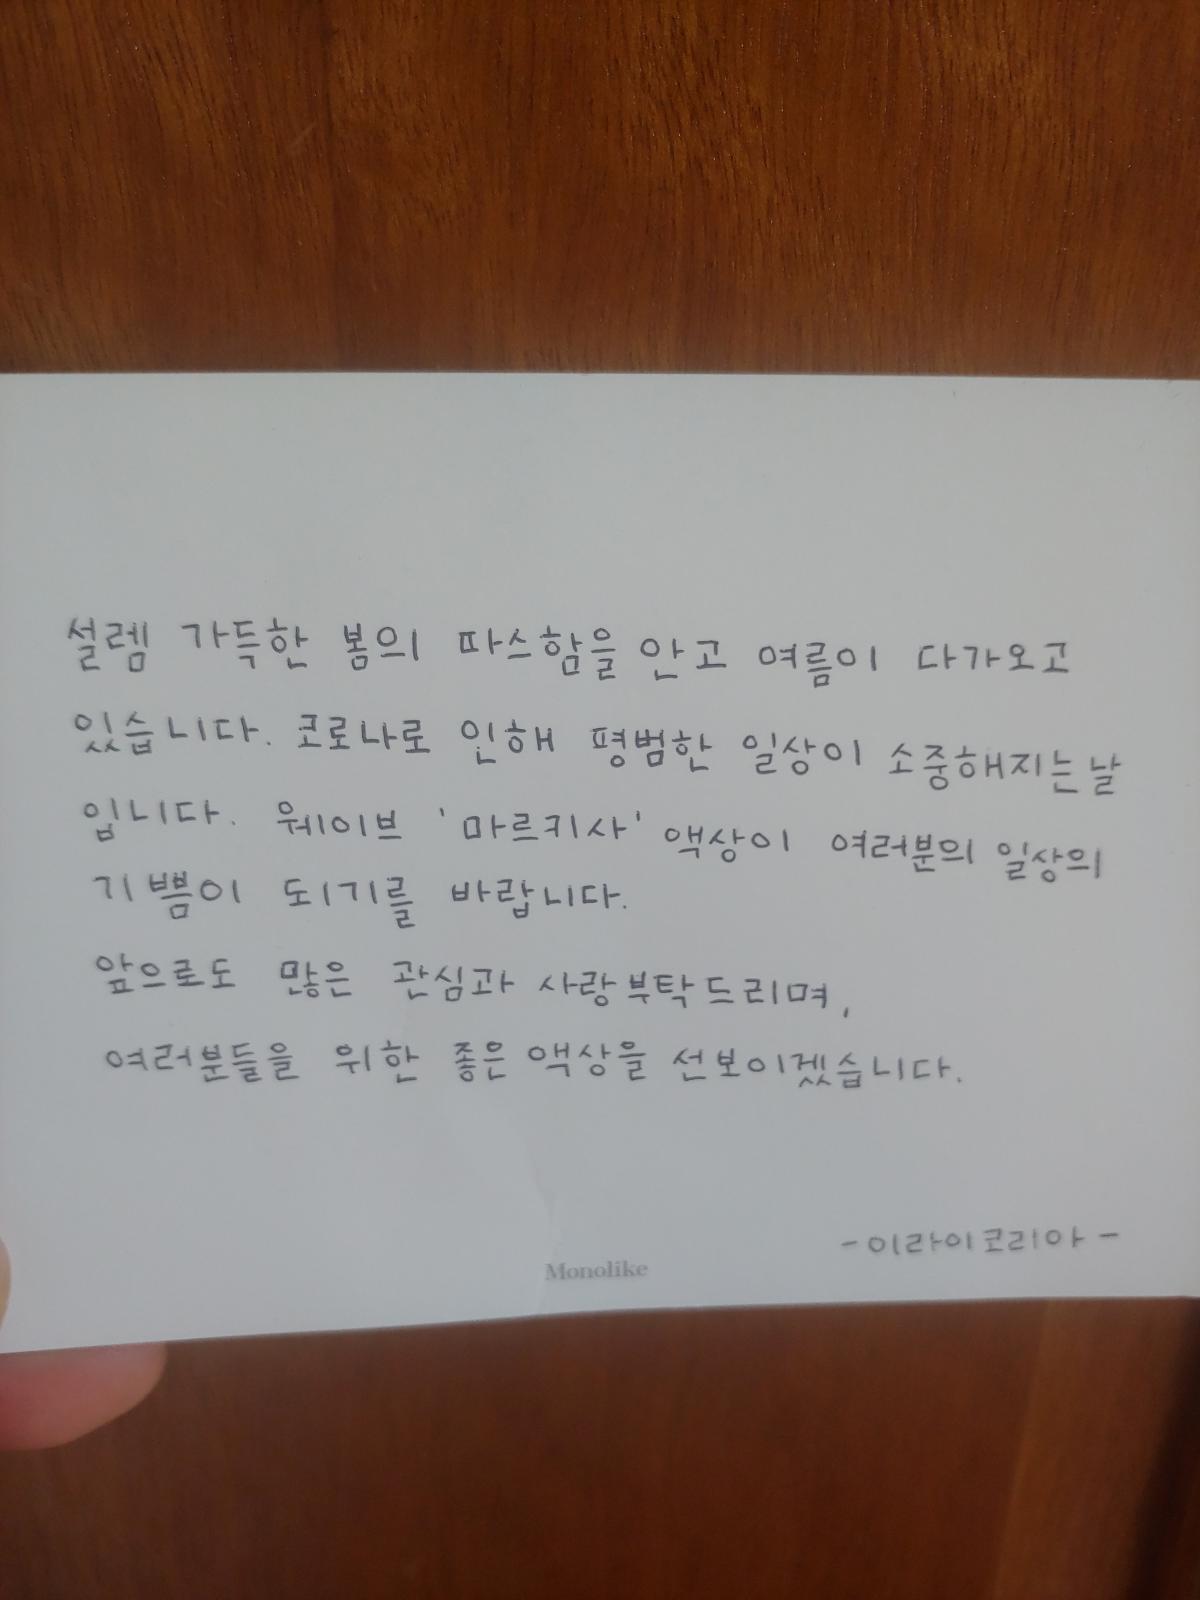 설렘 가득한 봄의 따스함을 안고 여름이 다가오고
있습니다. 코로나로 인해 평범한 일상이 소중해지는 날
입니다. 웨이브 '마르키사' 액상이 여러분의 일상의
기쁨이 되기를 바랍니다.
앞으로도 많은 관심과 사랑 부탁드리며,
여러분들을 위한 좋은 액상을 선보이겠습니다.
-이라이코리아-
Monolike